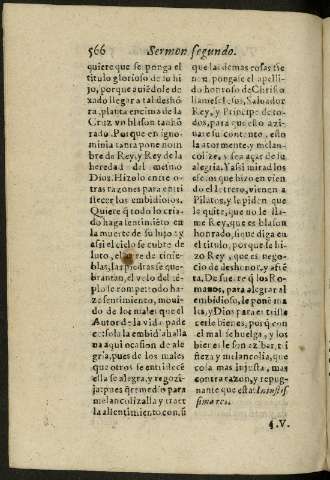 566 Sermon segundo.
quiere que se ponga el
titulo glorioso de su hi
jo, porque auiédole de
xado llegar a tal desho
ra, planta encima de la
Cruz vn blason tan hõ
rado. Porque en igno-
minia tanta pone nom
bre de Rey, y Rey de la
heredad del mesmo
Dios. Hizolo entre o-
tras razones para entri
stecer los embidiosos.
Quiere q̃ todo lo cria-
do haga sentimiẽto en
la muerte de su hijo: y
assi el cielo se cubre de
luto, el ayre de tinie-
blas, las piedras se que-
brantan, el velo del tẽ-
plo se rompe: todo ha-
ze sentimiento, moui-
do de los males que el
Autor de la vida pade
ce: sola la embidia halla
ua aqui ocasion de ale
gria, pues de los males
que otros se entristecẽ
ella se alegra, y regozi-
ja: pues q̃ remedio para
melancolizalla y traer
la al sentimiento con, si
que las demas cosas tie
nen? pongase el apelli-
do honroso de Christo
llamese Iesus, Saluador
Rey, y Principe de to-
dos, para que esto azi-
uare su contento, esto
la atormente, y melan-
colize, y sea açar de su
alegria. Y assi mirad los
de que hizo en vien
do el letrero, vienen a
Pilatos, y le piden que
le quite, que no le lla-
me Rey, que es blason
honrado, sino diga en
el titulo, porque se hi-
zo Rey, que es nego-
cio de deshonor, y afrẽ
ta. De suerte q̃ los Ro-
manos, para alegrar al
embidioso, le pone ma
les, y Dios para entriste
cerle bienes, porq̃ con
el mal se huelga, y los
bienes le son azibar, tri
steza y melancolia, que
cosa mas injusta, mas
contra razon, y repug-
nante que esta? Iniustis
simares.
4.V.